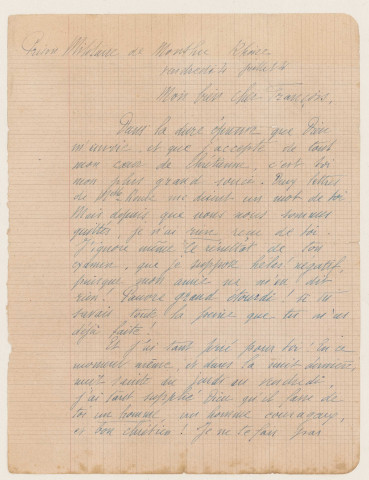 Prison Militaire de Montluc Rhône
vendredi 21 juillet 44
Mon bien cher François,
Dans la dure épreuve que Dieu
m'envoie, et que j'accepte de tout
mon cœur de chrétienne, c'est toi
mon plus grand souci. Deux lettres
de Mme me un mot de toi
Mais depuis que nous nous sommes
quittés, je n'ai rien reçu de toi.
J'ignore même le résultat de ton
examen, que je suppose hélas négatif,
puisque mon amie ne m'en dit
rien! Pauvre grand étourdi! si tu
savais toute la peine que tu m'as
déjà faite!
Et j'ai tant prié pour toi! En ce
moment même, et dans la nuit dernière,
nuit sainte du jeudi au vendredi,
j'ai tant supplié Dieu qu'il fasse de
toi un homme, un homme courageux,
et bon chrétien! Je ne te fais pas